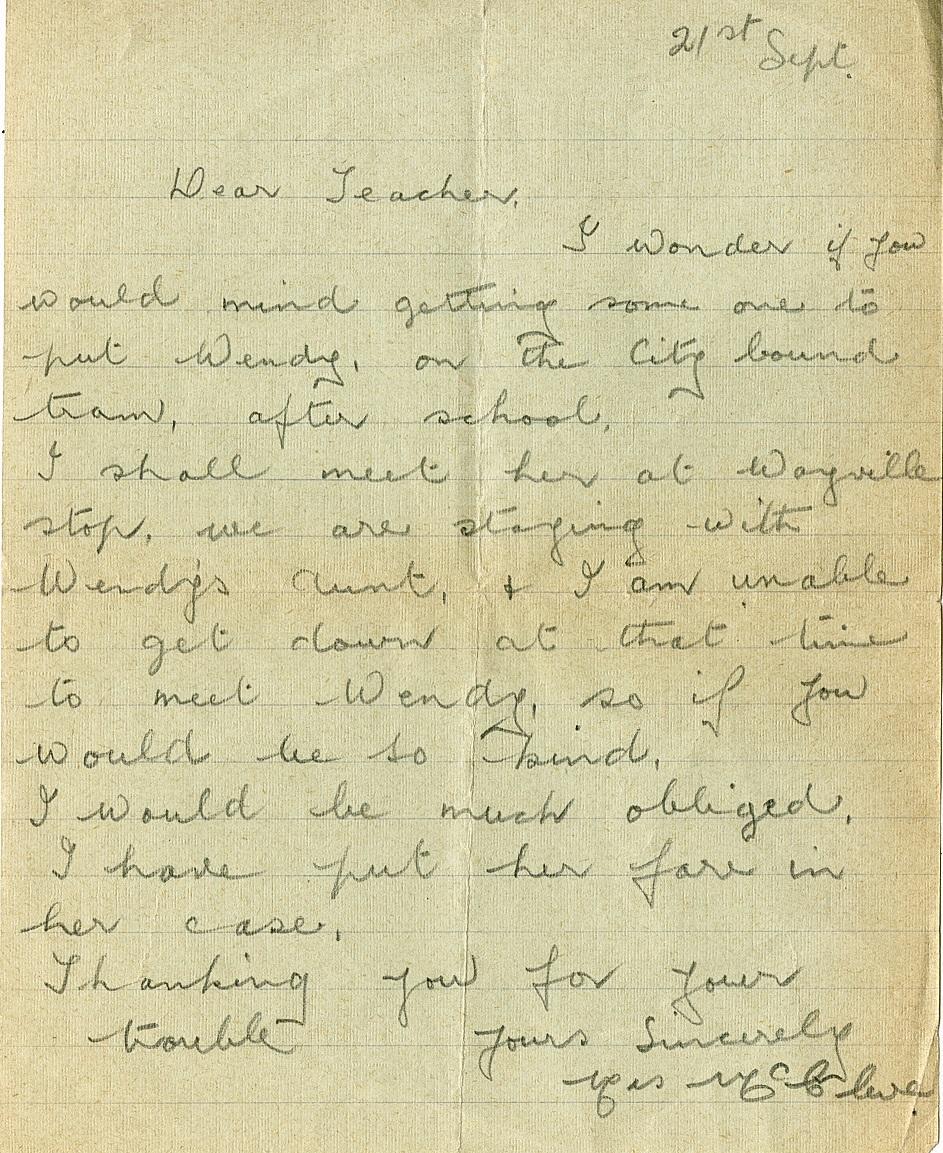 21st Sept.
Dear Teacher.
I wonder if you
would mind getting some one to
put Wendy, on the City bound
tram, after school.
I shall meet her at Wayville
stop, we are staying with
Wendy's Aunt, & I am unable
to get down at that time
to meet Wendy, so if you
would be so kind.
I would be much obliged.
I have put her fare in
her case.
Thanking you for your
trouble Yours Sincerely